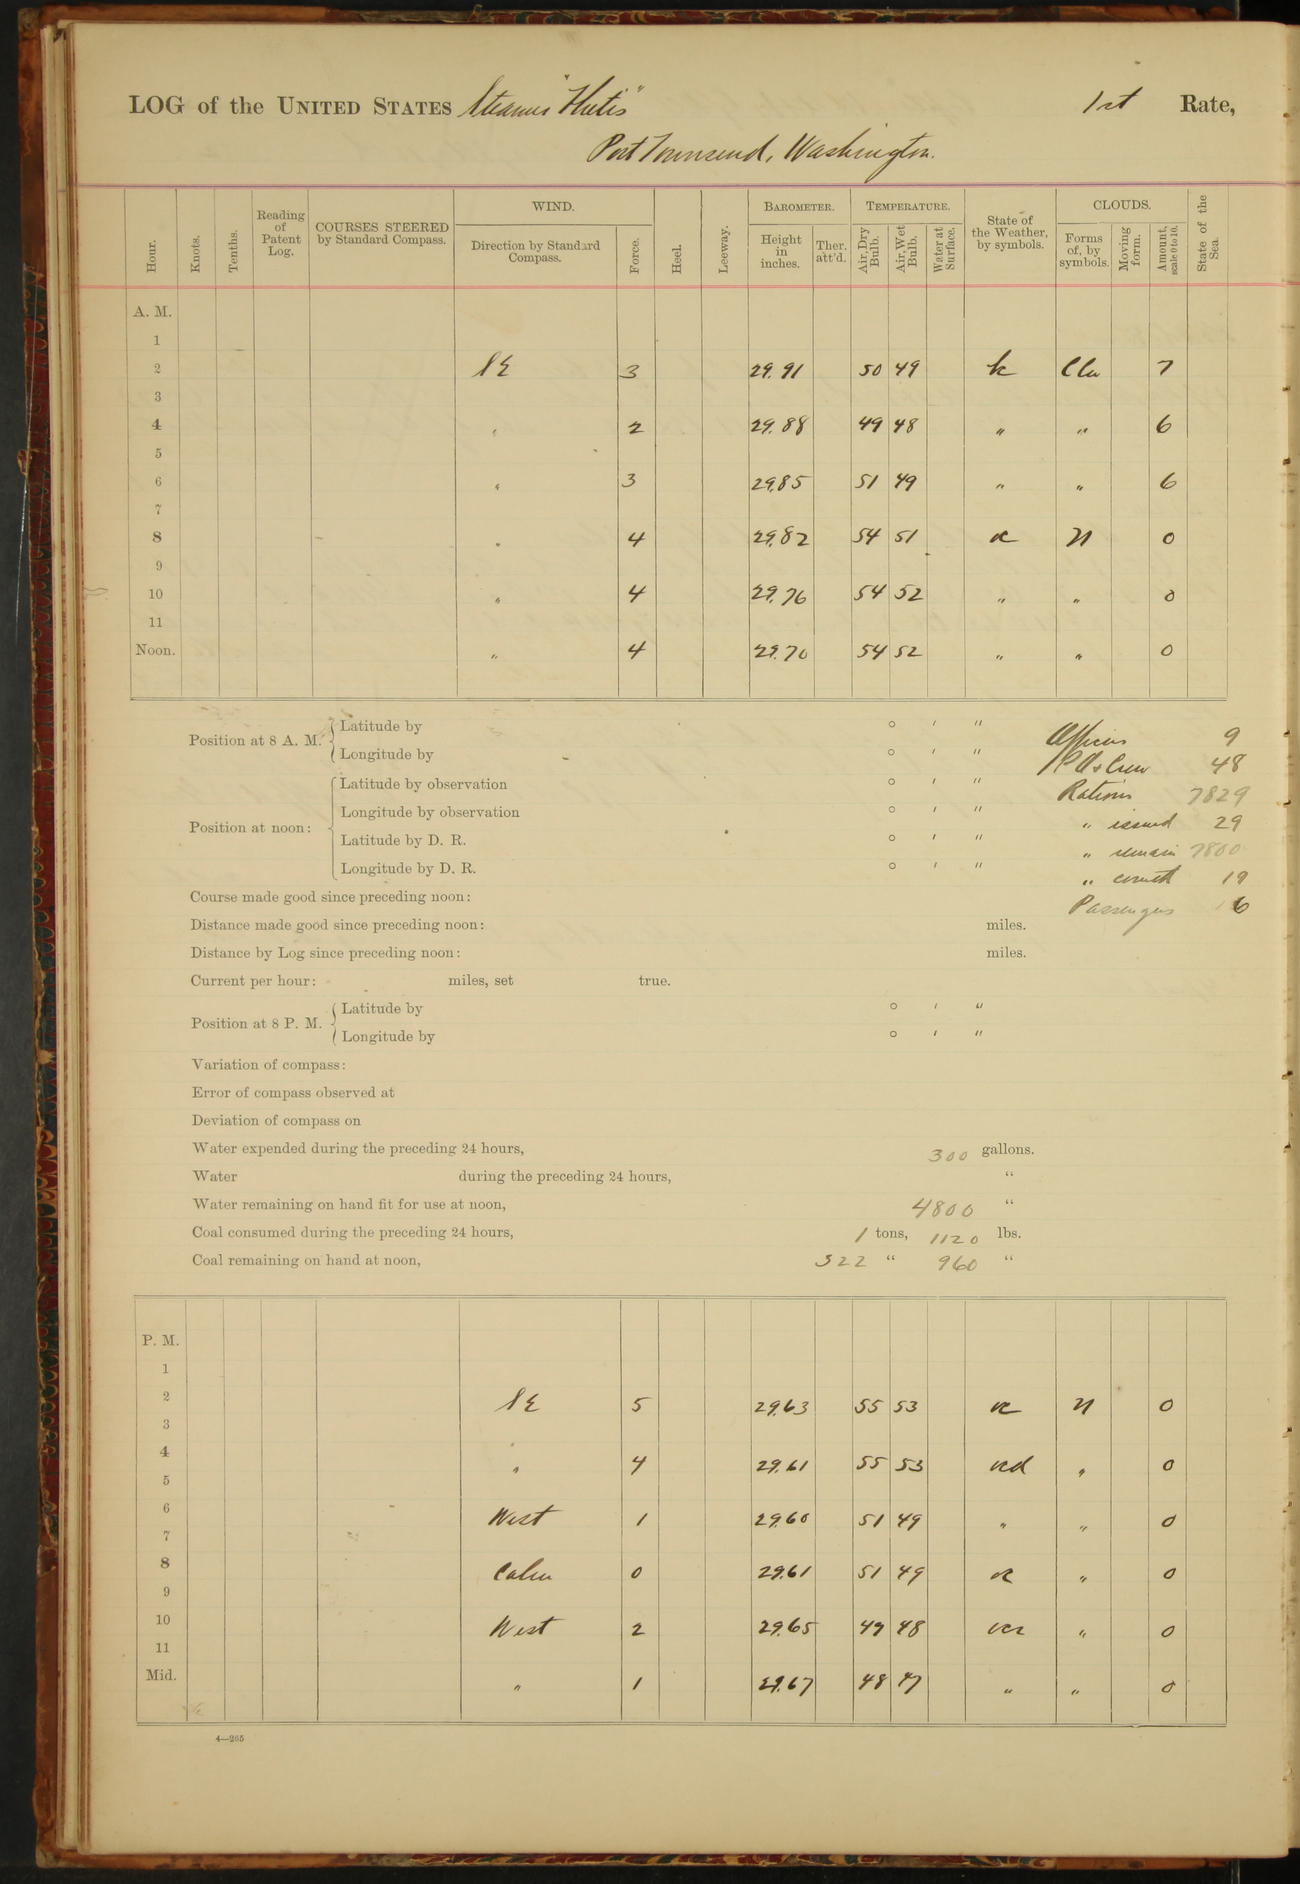 LOG of the UNITED STATES Steamer "Thetis" 1st Rate,
Port Townsend, Washington.
Hour. Knots. Tenths. Reading of Patent Log. COURSES STEERED by Standard Compass. WIND. Direction by Standard Compass. Force. Heel. Leeway. BAROMETER. Height in inches. Ther. att'd. TEMPERATURE. Air, Dry Bulb. Air, Wet Bulb. Water at Surface. State of the Weather, by symbols. CLOUDS. Forms of, by symbols. Moving form. Amount, scale 0 to 10. State of the Sea.
A. M.
1
2 SE 3 29.91 50 49 bc Cu 7
3
4 " 2 29.88 49 48 " " 6
5
6 " 3 29.85 51 49 " " 6
7
8 " 4 29.82 54 51 oc N 0
9
10 " 4 29.76 54 52 " " 0
11
Noon. " 4 29.70 54 52 " " 0
Position at 8 A. M. Latitude by ° ' "
Longitude by ° ' "
Position at noon: Latitude by observation ° ' "
Longitude by observation ° ' "
Latitude by D. R. ° ' "
Longitude by D. R. ° ' "
Officers 9
Crew 48
Rations 7829
" issued 29
" remain 7800
" 19
Passengers 6
Course made good since preceding noon:
Distance made good since preceding noon: miles.
Distance by Log since preceding noon: miles.
Current per hour: miles, set true.
Position at 8 P. M. Latitude by ° ' "
Longitude by ° ' "
Variation of compass:
Error of compass observed at
Deviation of compass on
Water expended during the preceding 24 hours, 300 gallons.
Water during the preceding 24 hours, "
Water remaining on hand fit for use at noon, 4800 "
Coal consumed during the preceding 24 hours, 1 tons, 1120 lbs.
Coal remaining on hand at noon, 322 " 960 "
P. M.
1
2 SE 5 29.63 55 53 N 0
3
4 " 4 29.61 55 53 " 0
5
6 West 1 29.60 51 49 " " 0
7
8 Calm 0 29.61 51 49 " 0
9
10 West 2 29.65 49 48 " 0
11
Mid. " 1 29.67 48 47 " " 0
4—265